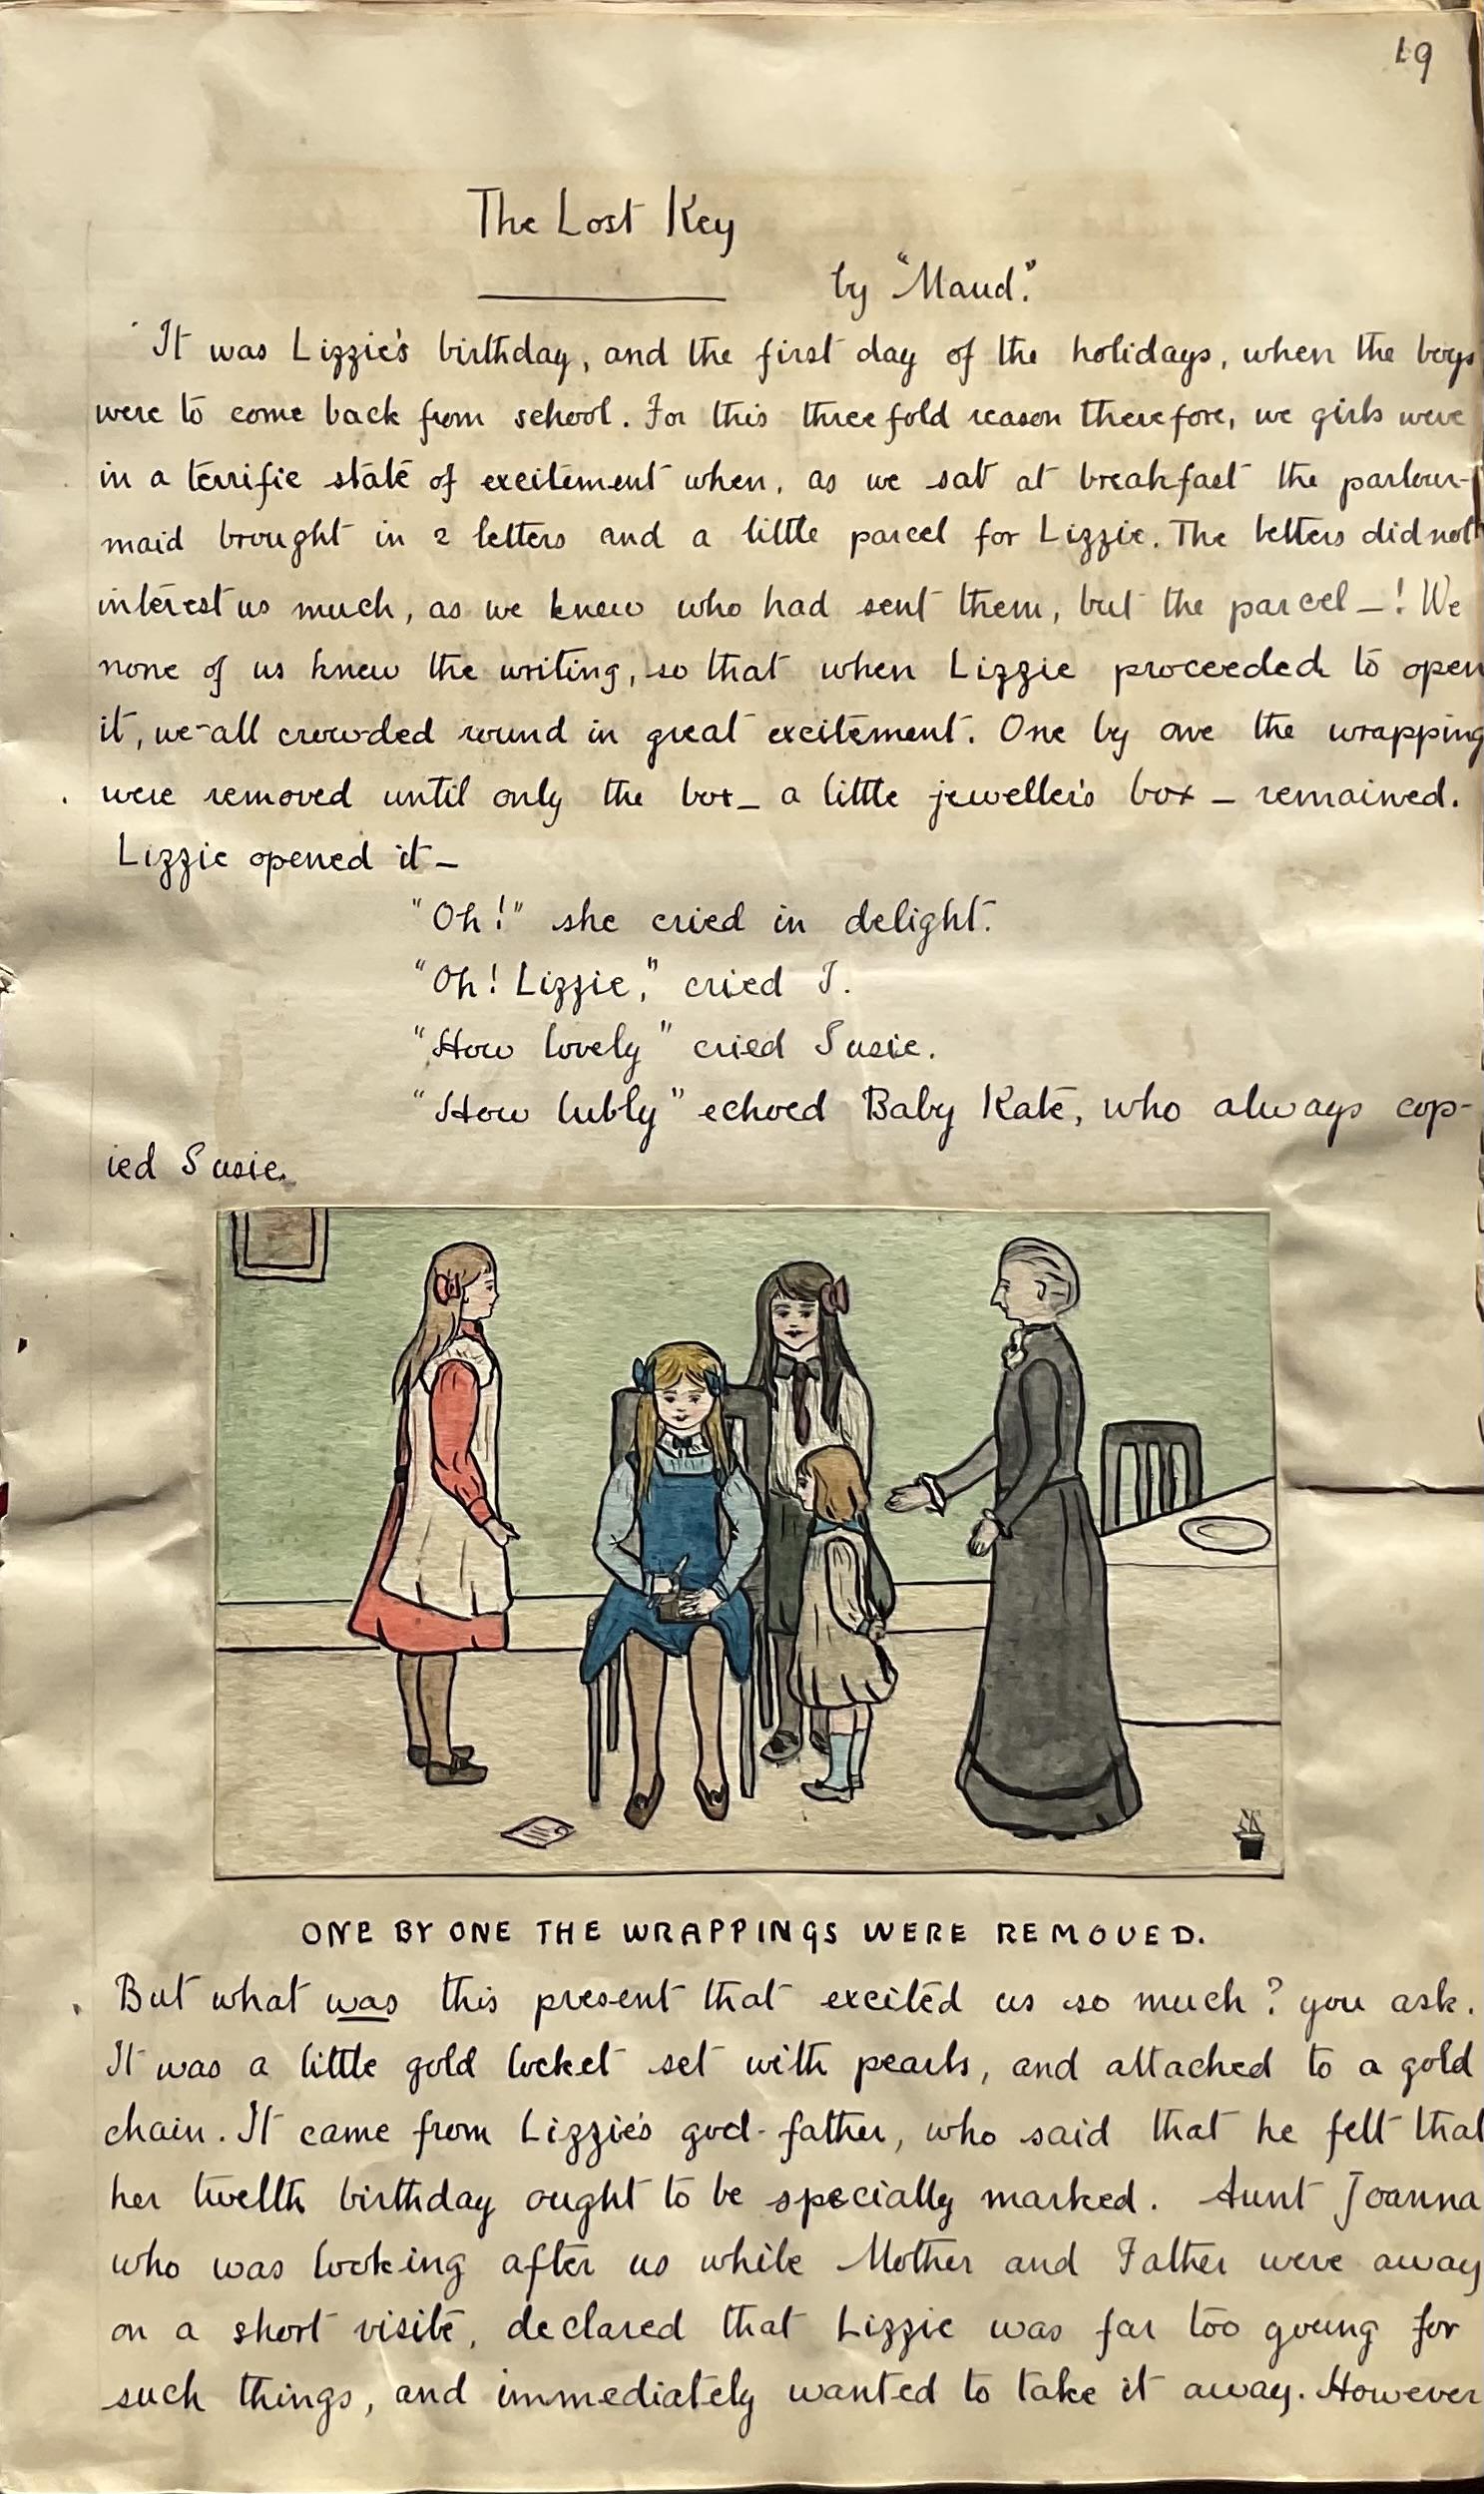 19
The Lost Key
by "Maud."
It was Lizzie's birthday, and the first day of the holidays, when the boys
were to come back from school. For this three fold reason therefore, we girls were
in a terrific state of excitement when, as we sat at breakfast the parlour-
maid brought in 2 letters and a little parcel for Lizzie. The letters did not
interest us much, as we knew who had sent them, but the parcel —! We
none of us knew the writing, so that when Lizzie proceeded to open
it, we all crowded round in great excitement. One by one the wrapping
were removed until only the box — a little jeweller's box — remained.
Lizzie opened it —
"Oh!" she cried in delight.
"Oh! Lizzie," cried I.
"How lovely" cried Susie.
"How lubly" echoed Baby Kate, who always cop-
ied Susie.
ONE BY ONE THE WRAPPINGS WERE REMOVED.
But what was this present that excited us so much? you ask.
It was a little gold locket set with pearls, and attached to a gold
chain. It came from Lizzie's god-father, who said that he felt that
her twelth birthday ought to be specially marked. Aunt Joanna
who was looking after us while Mother and Father were away
on a short visite, declared that Lizzie was far too young for
such things, and immediately wanted to take it away. However